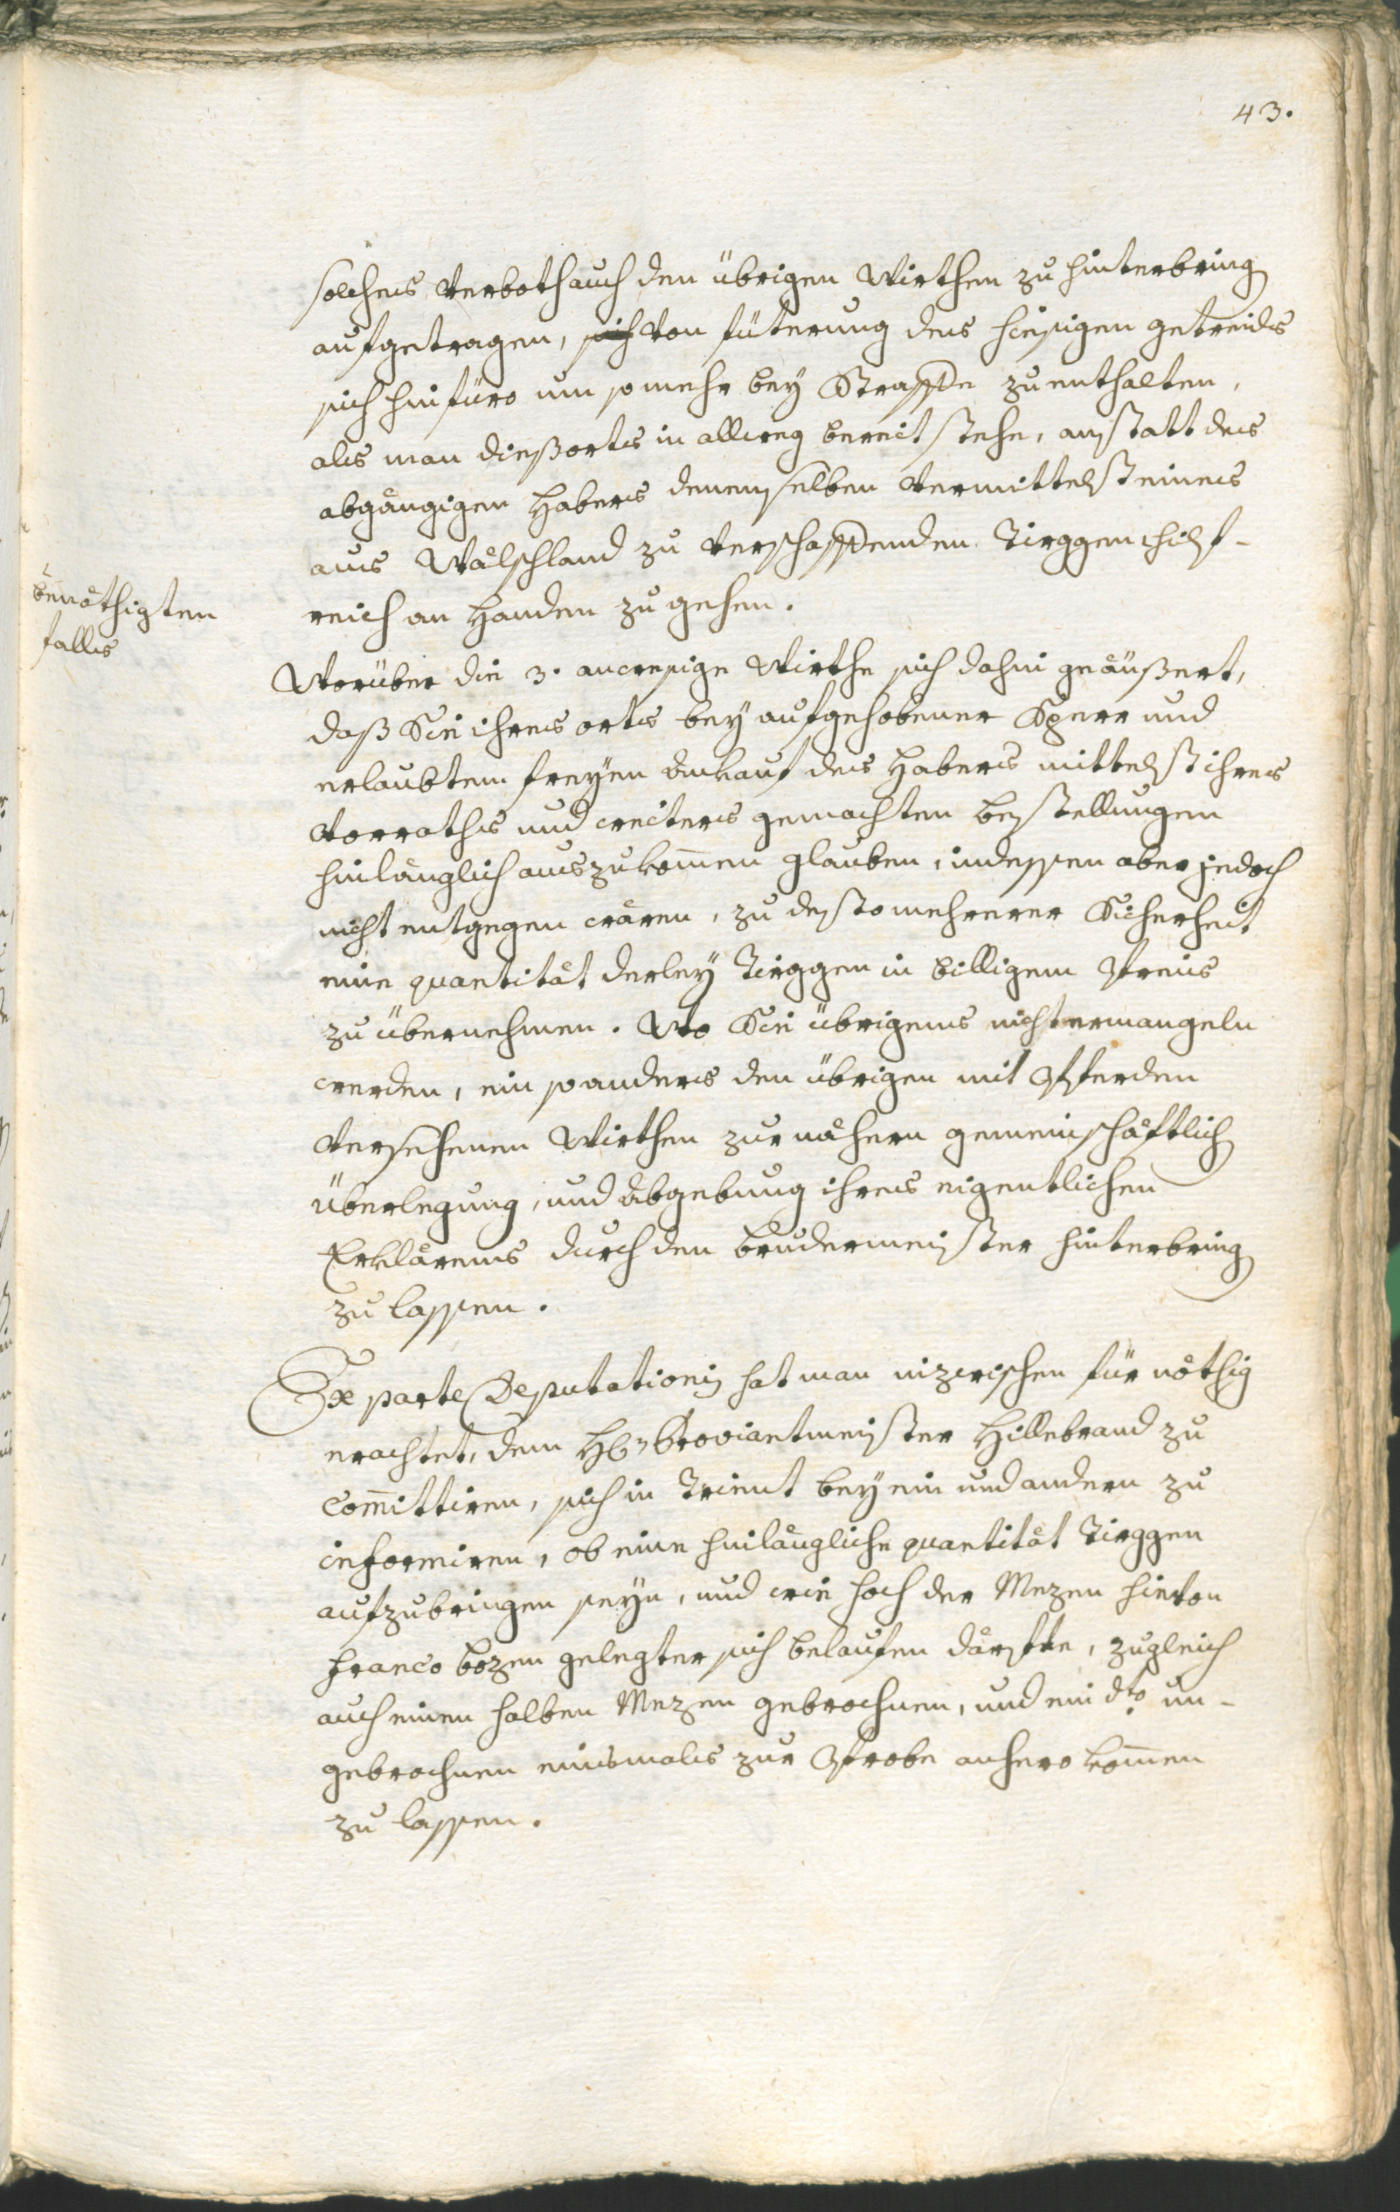 43.
solches Verboth auch den übrigen Wirthen zu hinterbring
aufgetragen, sich von fütterung des hiesigen getreids
sich hinfüro um so mehr bey Straffe zu enthalten,
als man diesorts in allweg bereit stehe, anstatt des
abgängigen Habers denenselben vermittelst eines
aus Wälschland zu verschaffenden Tirggen hilf-
reich an Handen zu gehen.
benöthigten
falls
Worüber die 3. anwesige Wirthe sich dahin geäußert,
daß Sie ihres orts bey aufgehobener Sperr und
erlaubtem freyen Ankauf des Habers mittelst ihres
Vorraths und weiters gemachten bestellungen
hinlänglich auszukom̄en glauben, indessen aber jedoch
nicht entgegen wären, zu desto mehrerer Sicherheit
eine quantität derley Tirggen in billigem Preis
zu übernehmen. Wo Sie übrigens nicht ermangeln
werden, ein so anders den übrigen mit Pferden
versehenen Wirthen zur nähern gemeinschäftlich
Überlegung, und Abgebung ihres eigentlichen
Erklärens durch den brudermeister hinterbring
zu lassen.
Ex parte Deputationis hat man inzwischen für nöthig
erachtet, dem H: Proviantmeister Hillebrand zu
Com̄ittiren, sich in Trient bey ein und andern zu
informiren, ob eine hinlängliche quantität Tirggen
aufzubringen seyn, und wie hoch der Mezen hievon
franco bozen gelegter sich belaufen därffte, zugleich
auch einen halben Mezen gebrochnen, und ein dto un-
gebrochnen einsmals zur Probe anhero kom̄en
zu lassen.